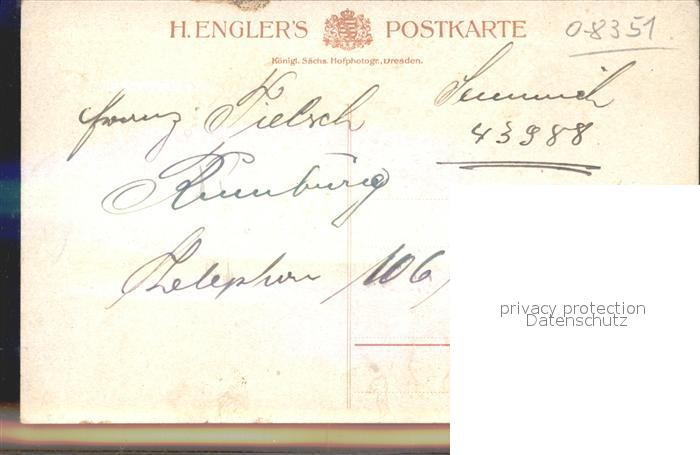 H. ENGLER'S POSTKARTE
0-8351
Königl. Sächs. Hofphotogr., Dresden.
Franz Pietsch
43988
Rumburg
Telephon 106
privacy protection
Datenschutz